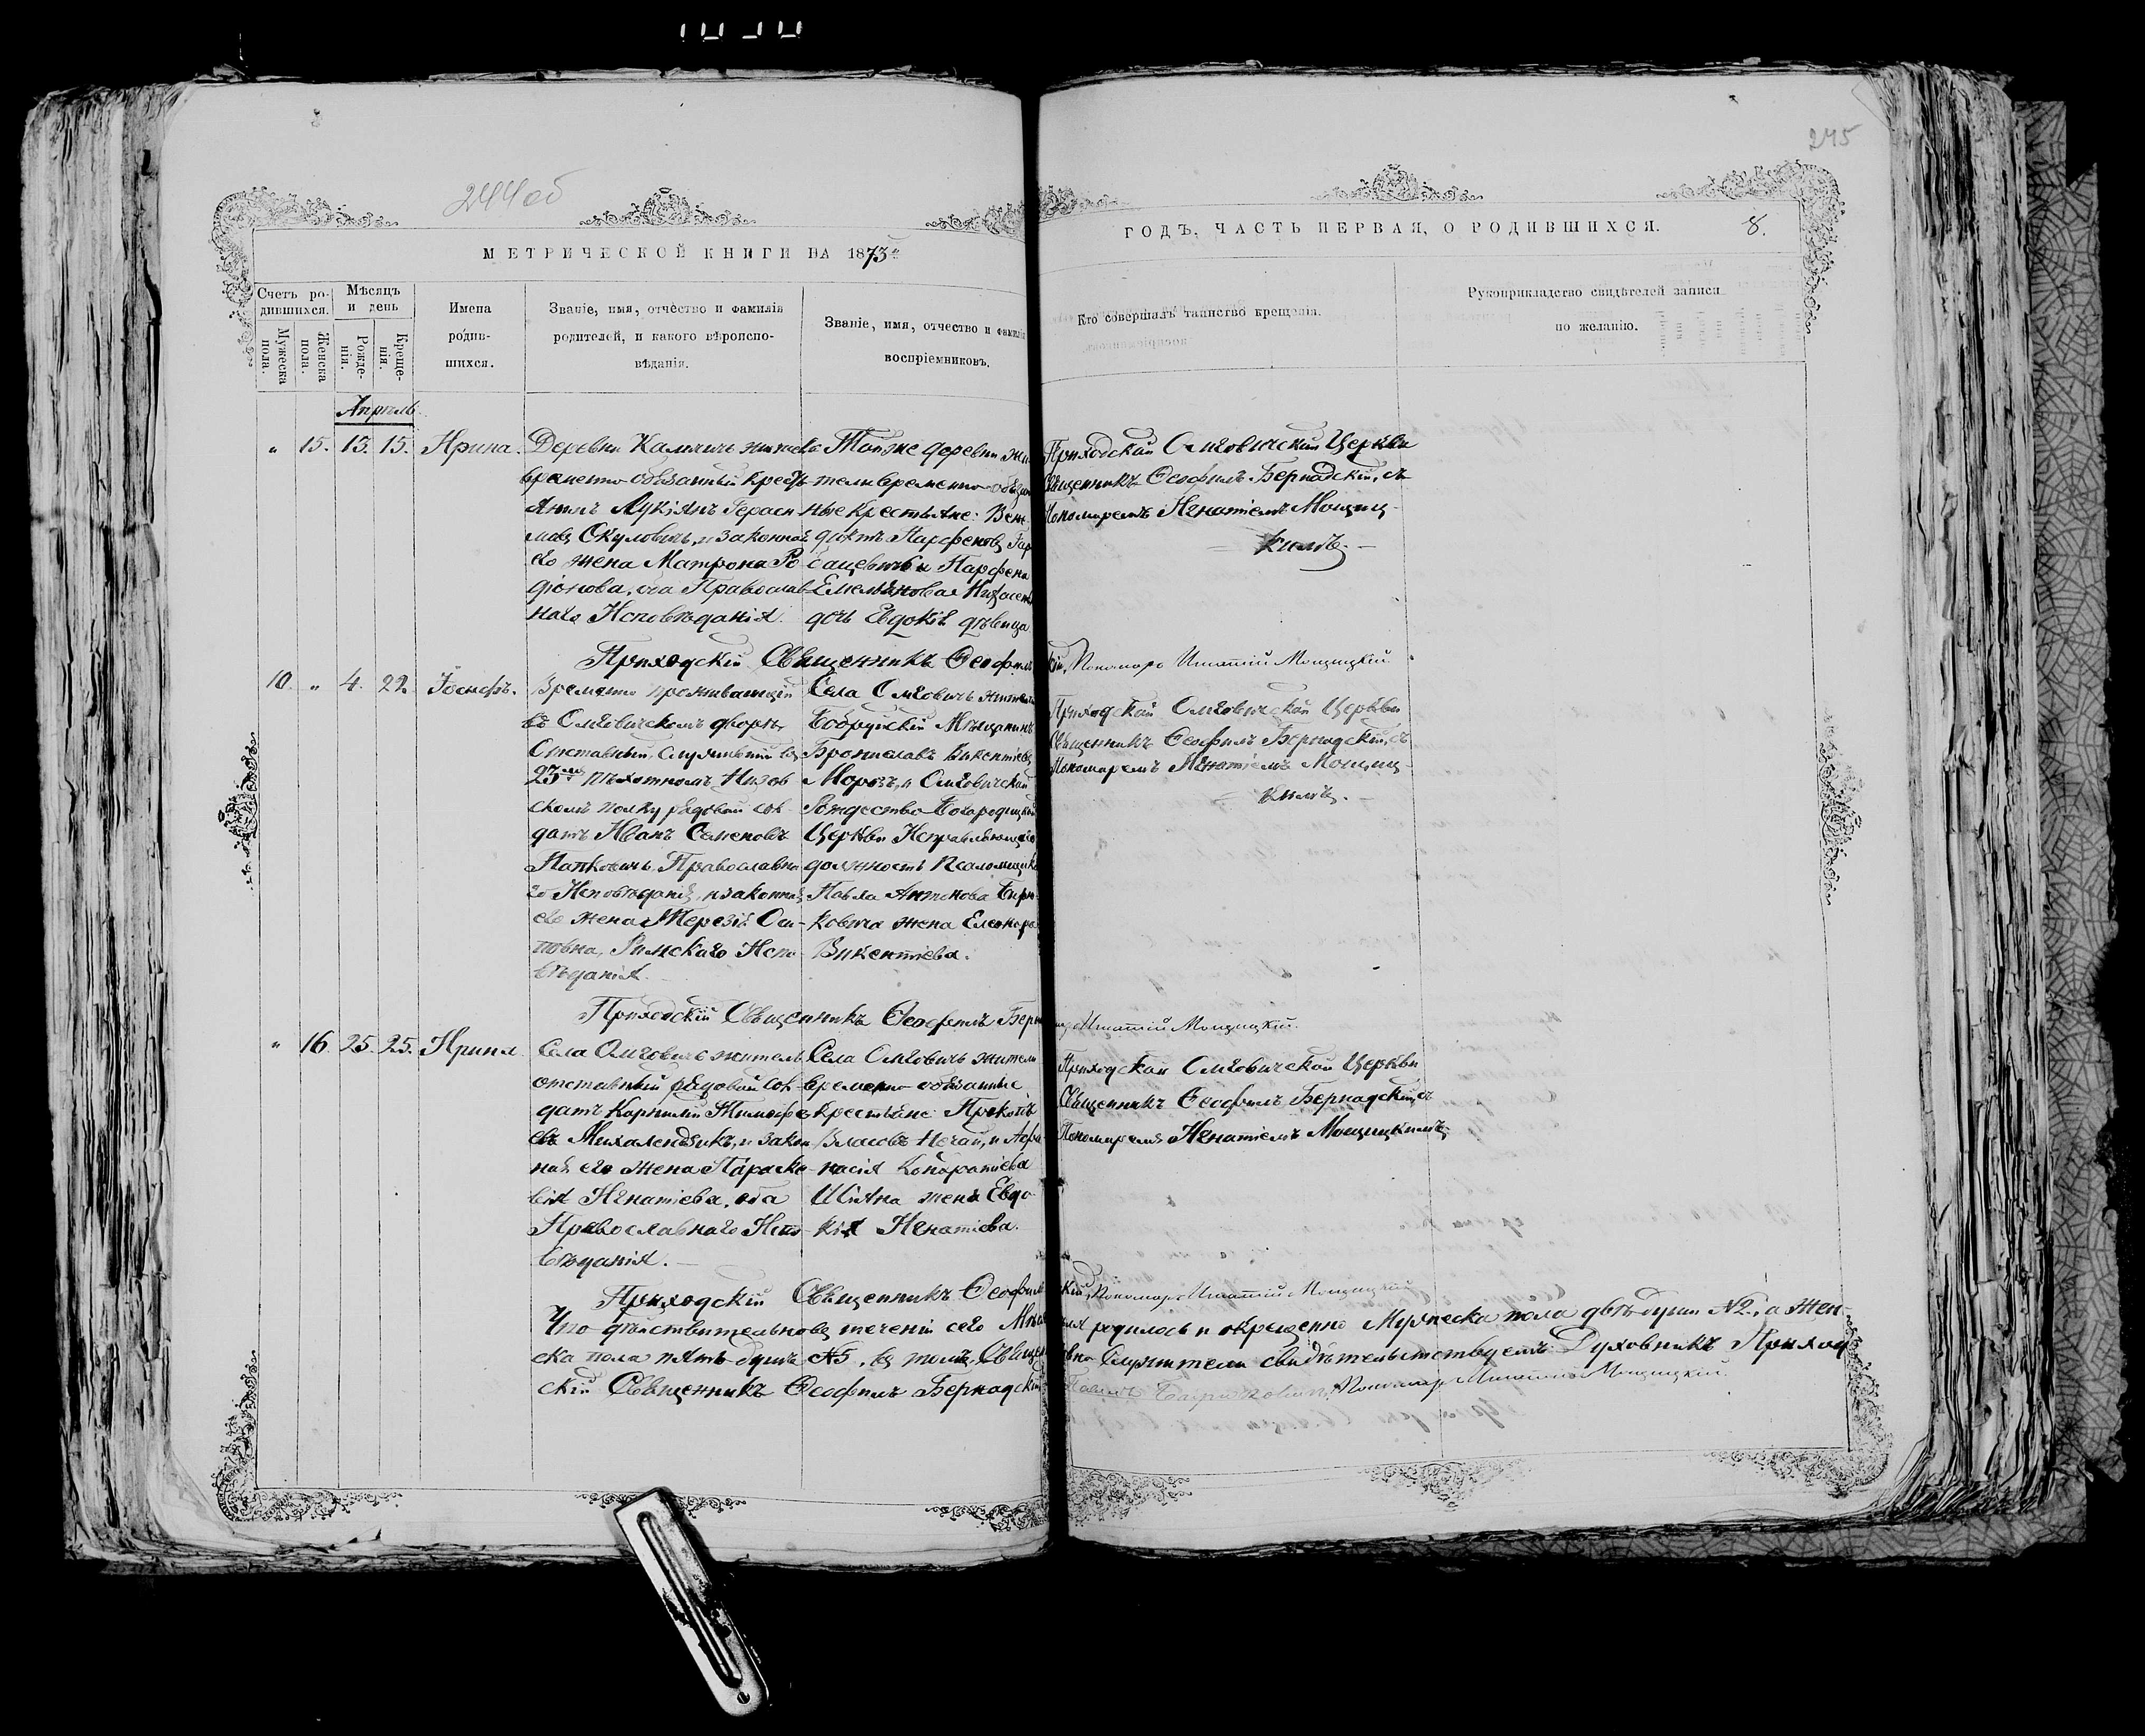 244об
245
МЕТРИЧЕСКОЙ КНИГИ НА 1873й
ГОДЪ, ЧАСТЬ ПЕРВАЯ, О РОДИВШИХСЯ.
8.
Счетъ ро-
дившихся.
Мужеска
пола.
Женска
пола.
Мѣсяцъ
и день
Рожде-
нія.
Креще-
нія.
Имена
родив-
шихся.
Званіе, имя, отчество и фамилія
родителей, и какого вѣроиспо-
вѣданія.
Званіе, имя, отчество и фамилія
воспріемниковъ.
Кто совершалъ таинство крещенія.
Рукоприкладство свидѣтелей записи
по желанію.
Апрѣль
" 15. 13. 15. Ирина.
Деревни житель
временно-обязанный кресть-
янинъ Лукіянъ Герасн
мовъ Скуловичъ, и законная
его жена Матрона Ро-
діонова, оба Православ-
наго Исповѣданія.
Тойже деревни жи
тели временно-обязан
ные крестьяне: Вене
диктъ Парфеновъ Гар
и Парфена
Емельянова
дочь Евдокія дѣвица
Приходской Омговичской Церкви
Священникъ Ѳеофилъ Бернадскій, съ
Пономаремъ Игнатіемъ Мощиц-
кимъ.
Приходскій Священникъ Ѳеофилъ
кій, Пономарь Игнатій Мощицкій
10. " 4. 22. Іосифъ.
Временно проживающій
въ Омговичскомъ дворѣ,
Отставный, служившій въ
23мъ пѣхотномъ Низов
скомъ полку рядовой сол
датъ Иванъ Семеновъ
Православна
го Исповѣданія, и законная
его жена Терезія Оси-
повна, Римскаго Испо-
вѣданія.
Села Омговичъ житель
Бобруйскій Мѣщанинъ
Брониславъ Викентіевъ
Морозъ, и Омговичской
Рождество Богородицкой
Церкви Исправляющаго
должность Псаломщика
Павла Антонова Бирн-
ковича жена Елеонора
Викентіева.
Приходской Омговичской Церкви
Священникъ Ѳеофилъ Бернадскій, съ
Пономаремъ Игнатіемъ Мощиц-
кимъ.
Приходскій Священникъ Ѳеофилъ Берн
Игнатій Мощицкій.
" 16. 25. 25. Ирина.
Села Омговичъ житель
отставный рядовой сол-
датъ Корнилій Тимофе
евъ Михалендзикъ, и закон
ная его жена Параске-
вія Игнатіева, оба
Православнаго Испо-
вѣданія.
Села Омговичъ жители
временно-обязанные
крестьяне: Прокопій
Власовъ Нечай, и Афа
насія Кондратіева
жена Евдо-
кія Игнатіева.
Приходской Омговичской Церкви
Священникъ Ѳеофилъ Бернадскій, съ
Пономаремъ Игнатіемъ Мощицкимъ.
Приходскій Священникъ Ѳеофилъ
кій, Пономарь Игнатій Мощицкій
Что дѣйствительно въ теченіи сего Мѣся родилось и окрещенно Мужеска пола двѣ души №2, а Жен-
ска пола пять душъ №5, въ томъ Священ Служители свидѣтельствуемъ: Духовникъ Приход
скій Священникъ Ѳеофилъ Бернадскій Пономарь Игнатій Мощицкій.